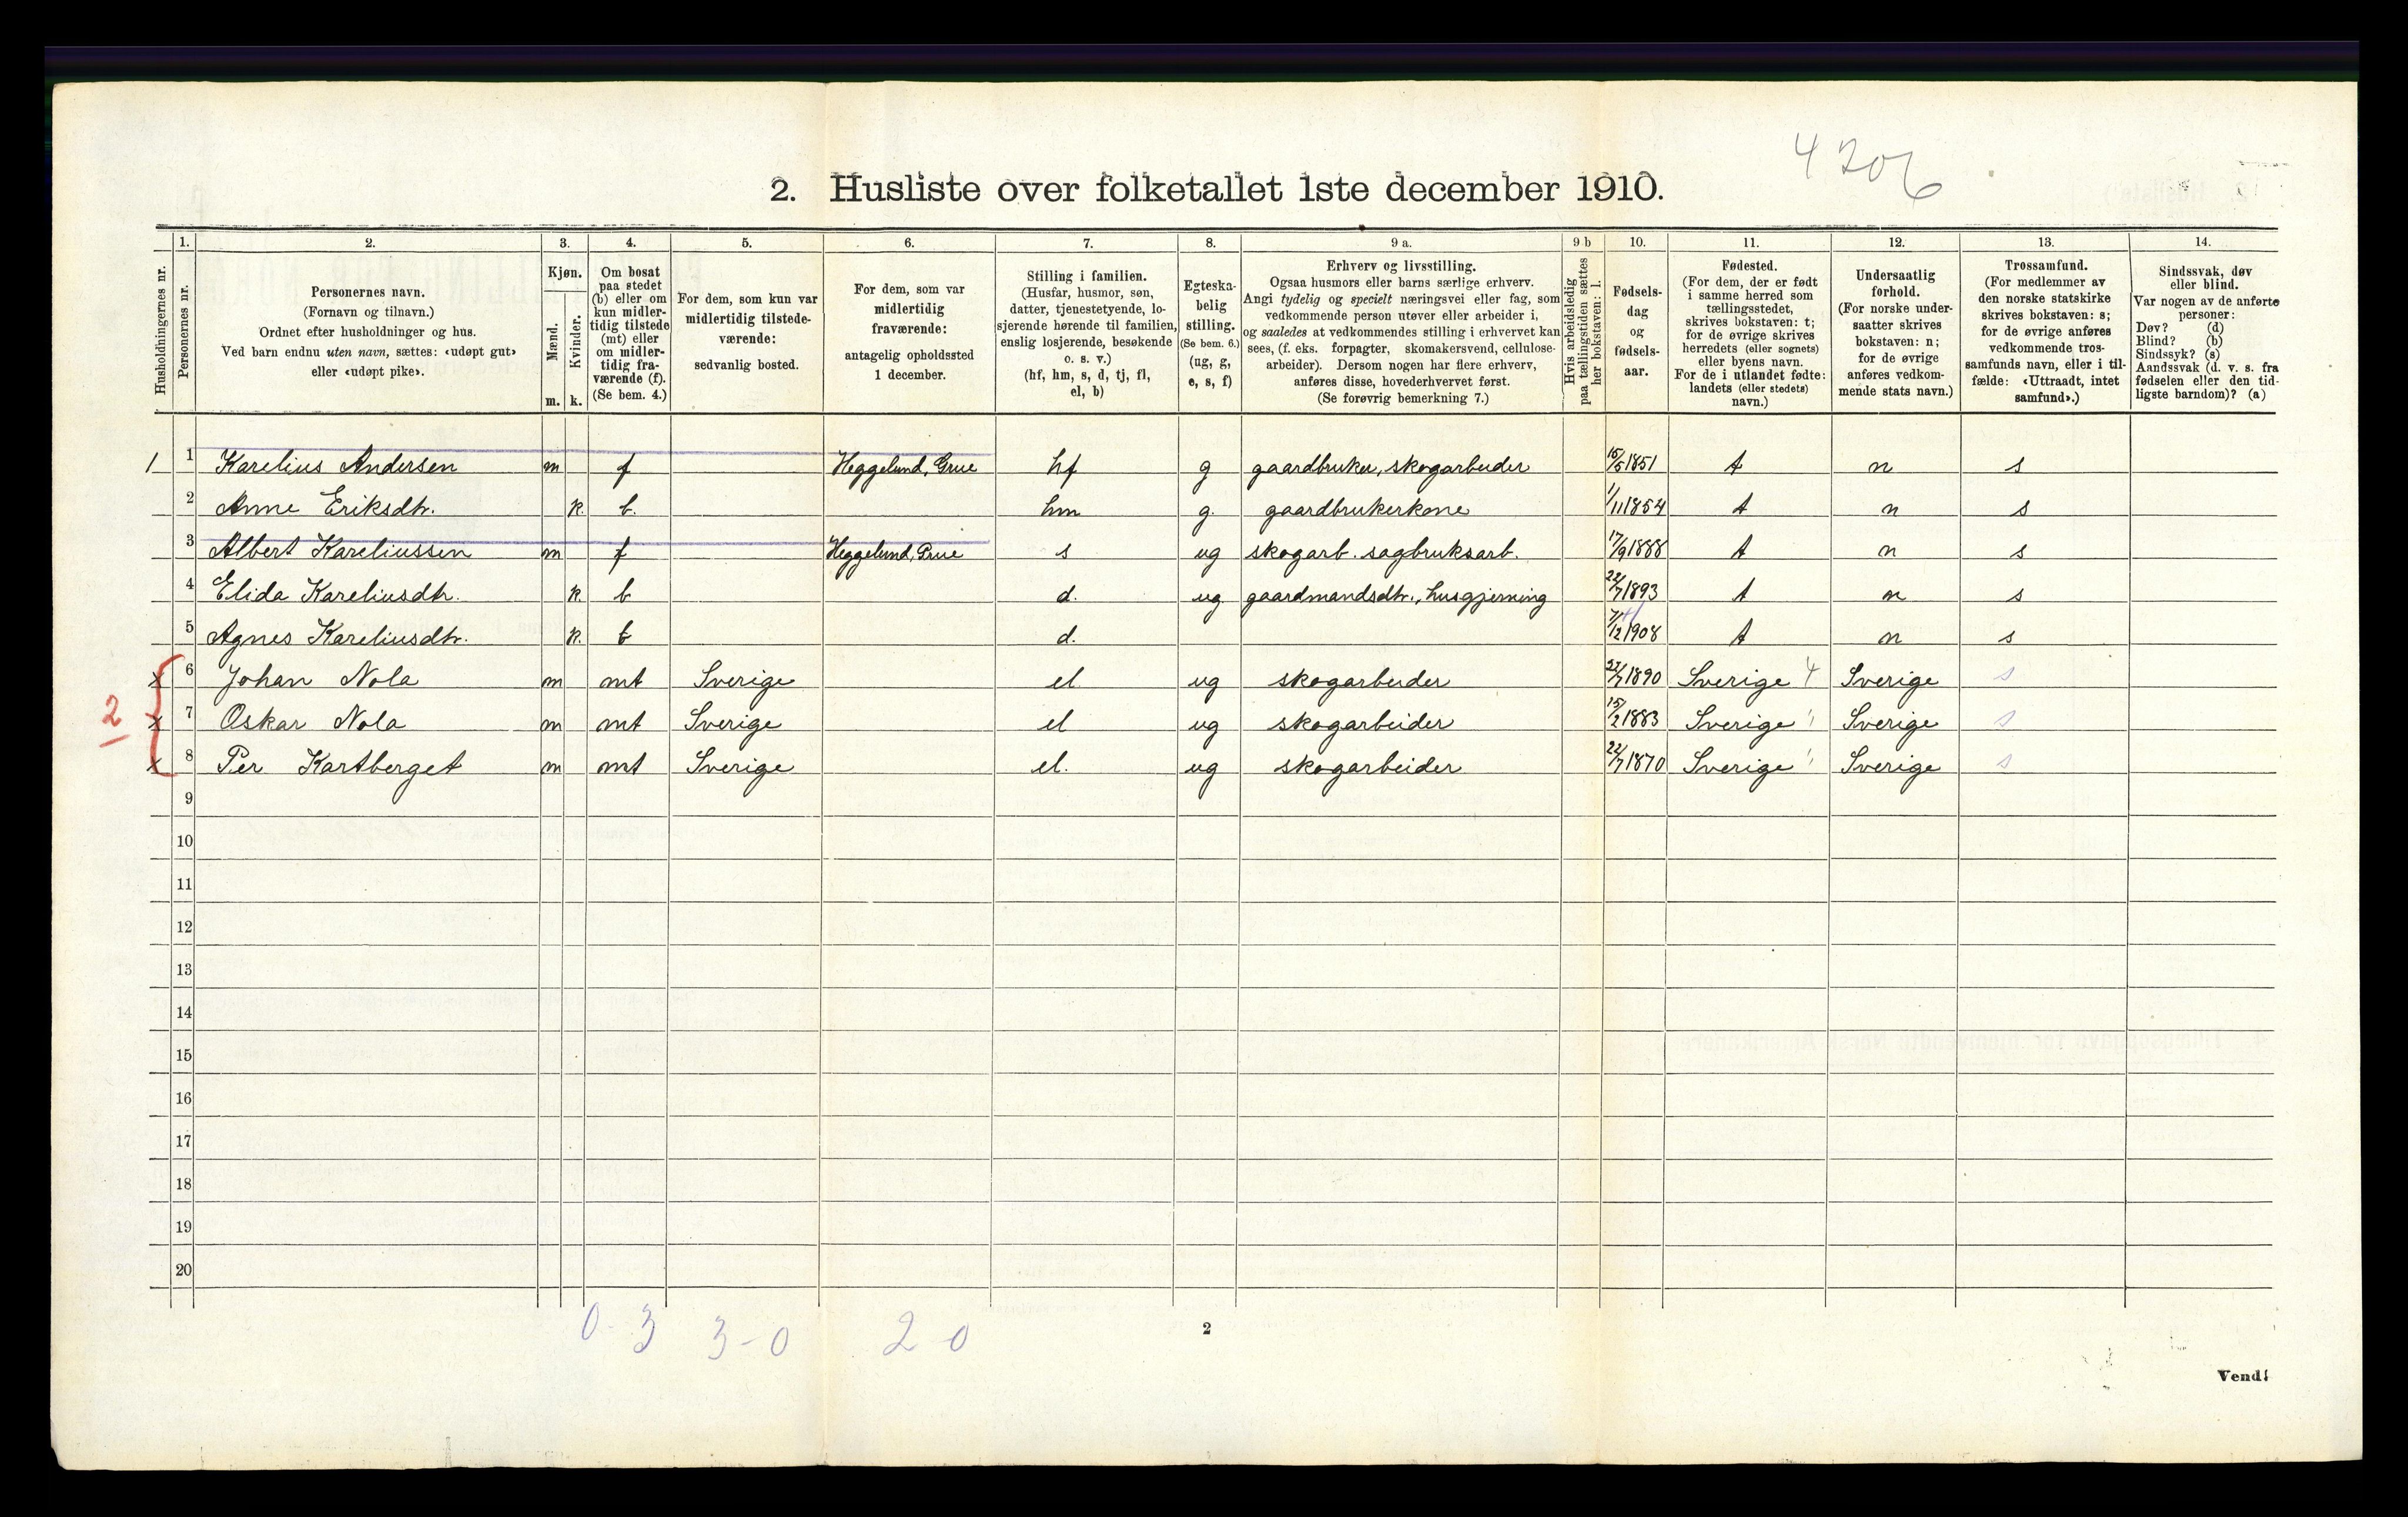 4206
2. Husliste over folketallet 1ste december 1910.
Husholdningernes nr.
1. Personernes nr.
2. Personernes navn. (Fornavn og tilnavn.) Ordnet efter husholdninger og hus. Ved barn endnu uten navn, sættes: «udøpt gut» eller «udøpt pike».
3. Kjøn. Mænd. m. Kvinder. k.
4. Om bosat paa stedet (b) eller om kun midlertidig tilstede (mt) eller om midlertidig fraværende (f). (Se bem. 4.)
5. For dem, som kun var midlertidig tilstedeværende: sedvanlig bosted.
6. For dem, som var midlertidig fraværende: antagelig opholdssted 1 december.
7. Stilling i familien. (Husfar, husmor, søn, datter, tjenestetyende, losjerende hørende til familien, enslig losjerende, besøkende o. s. v.) (hf, hm, s, d, tj, fl, el, b)
8. Egteskabelig stilling. (Se bem. 6.) (ug, g, e, s, f)
9 a. Erhverv og livsstilling. Ogsaa husmors eller barns særlige erhverv. Angi tydelig og specielt næringsvei eller fag, som vedkommende person utøver eller arbeider i, og saaledes at vedkommendes stilling i erhvervet kan sees, (f. eks. forpagter, skomakersvend, cellulosearbeider). Dersom nogen har flere erhverv, anføres disse, hovederhvervet først. (Se forøvrig bemerkning 7.)
9 b Hvis arbeidsledig paa tællingstiden sættes her bokstaven: l.
10. Fødselsdag og fødselsaar.
11. Fødested. (For dem, der er født i samme herred som tællingsstedet, skrives bokstaven: t; for de øvrige skrives herredets (eller sognets) eller byens navn. For de i utlandet fødte: landets (eller stedets) navn.)
12. Undersaatlig forhold. (For norske undersaatter skrives bokstaven: n; for de øvrige anføres vedkommende stats navn.)
13. Trossamfund. (For medlemmer av den norske statskirke skrives bokstaven: s; for de øvrige anføres vedkommende trossamfunds navn, eller i tilfælde: «Uttraadt, intet samfund».)
14. Sindssvak, døv eller blind. Var nogen av de anførte personer: Døv? (d) Blind? (b) Sindssyk? (s) Aandssvak (d. v. s. fra fødselen eller den tidligste barndom)? (a)
1 1 Karelius Andersen m f Heggelund, Grue hf g gaardbruker, skogarbeider 15/5 1851 t n s
2 Anne Eriksdtr. k. b. hm g. gaardbrukerkone 1/11 1854 t n s
3 Albert Kareliussen m f Heggelund, Grue s ug skogarb. sagbruksarb. 17/9 1888 t n s
4 Elida Kareliusdtr. k. b d. ug. gaardmandsdtr., husgjerning 22/7 1893 t n s
5 Agnes Kareliusdtr. k. b d. 7/12 1908 t n s
x 6 Johan Nola m mt Sverige el ug skogarbeider 27/7 1890 Sverige 4 Sverige s
2 x 7 Oskar Nola m mt Sverige el ug skogarbeider 15/2 1883 Sverige " Sverige s
x 8 Per Kartberget m mt Sverige el. ug skogarbeider 22/7 1870 Sverige " Sverige s
9
10
11
12
13
14
15
16
17
18
19
20
0-3 3-0 2 0
2
Vend!